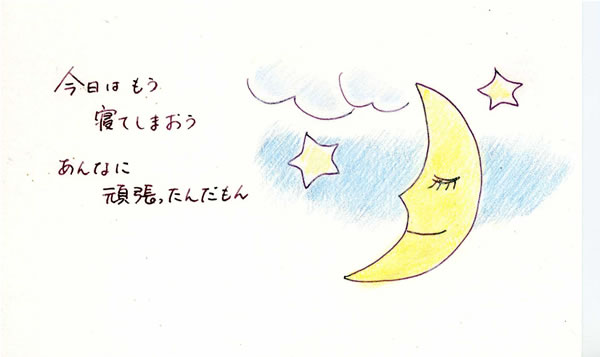 今日は もう
寝てしまおう
あんなに
頑張ったんだもん